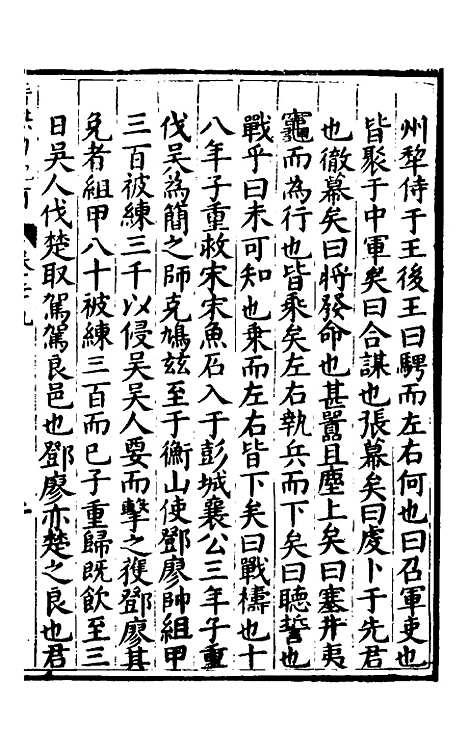 州犂侍于王後王曰騁而左右何也曰召軍吏也
皆聚于中軍矣曰合謀也張幕矣曰虔卜于先君
也徹幕矣曰將發命也甚囂且塵上矣曰塞井夷
竈而為行也皆乘矣左右執兵而下矣曰聽誓也
戰乎曰未可知也乗而左右皆下矣曰戰禱也十
八年子重救宋宋魚石入于彭城襄公三年子重
伐吳為簡之師克鳩兹至于衡山使鄧廖帥組甲
三百被練三千以侵吳吳人要而擊之獲鄧廖其
免者組甲八十被練三百而已子重歸既飲至三
日吳人伐楚取駕駕良邑也鄧廖亦楚之良也君